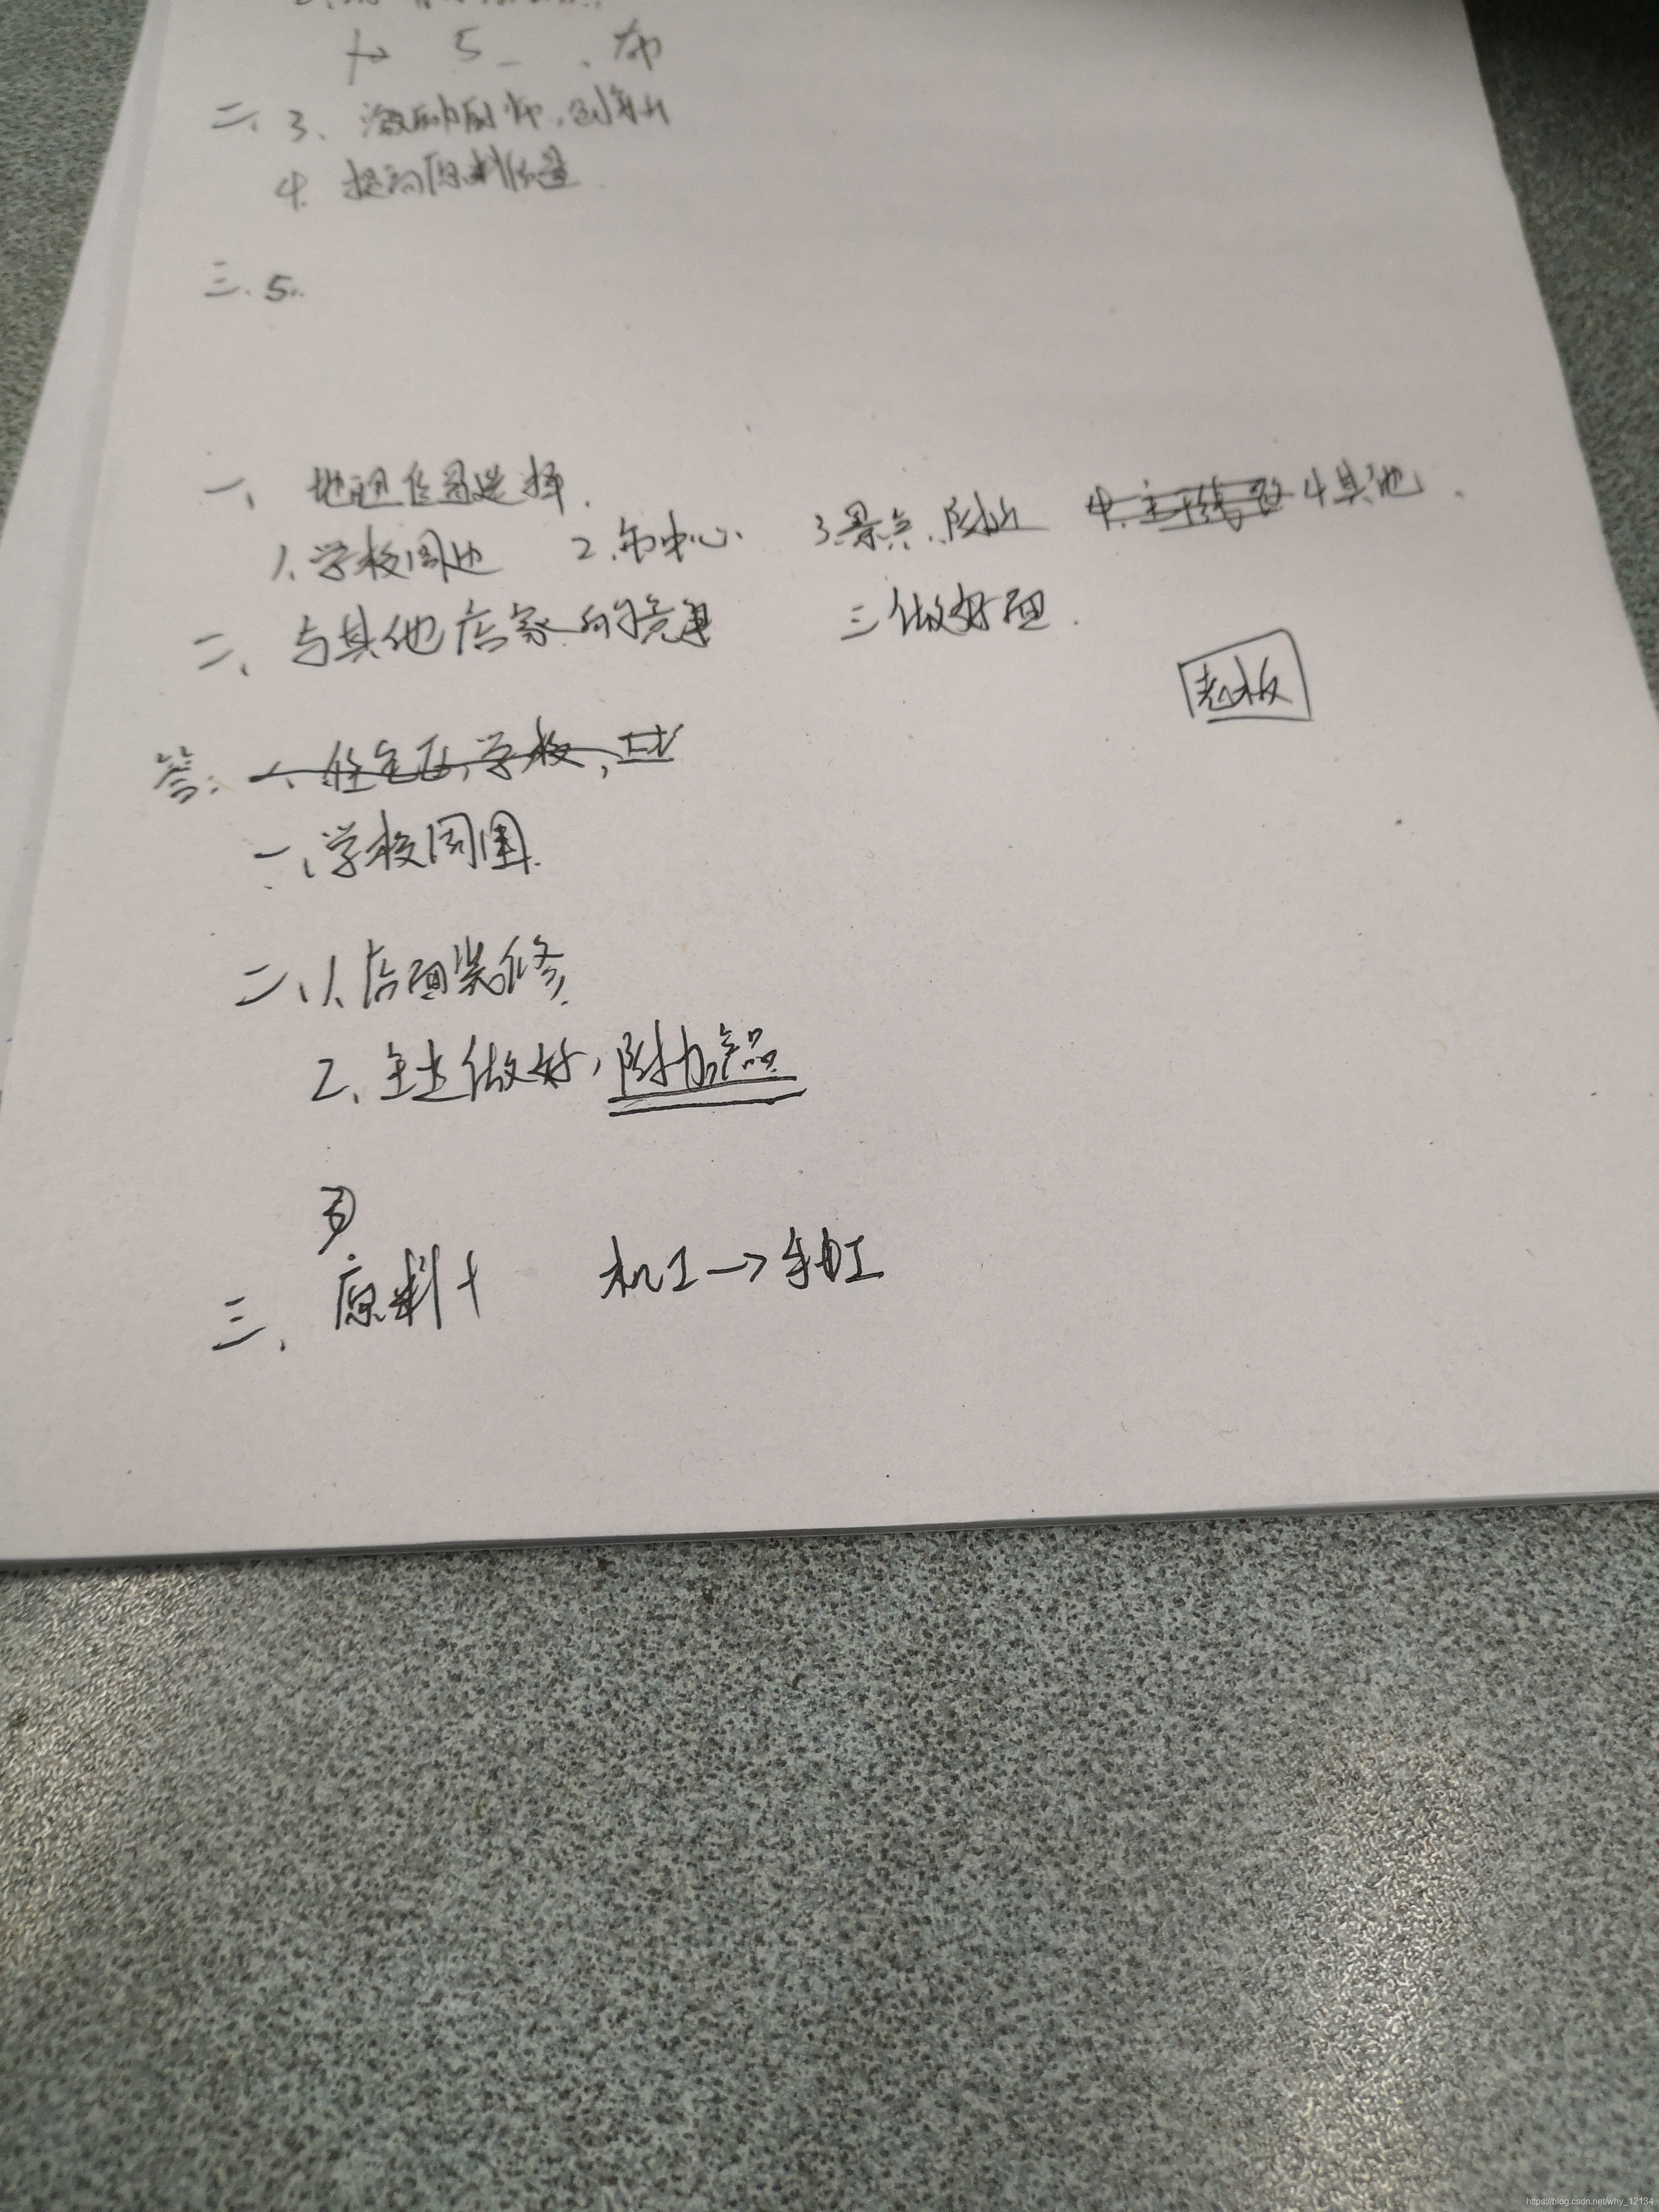 5
二、3、激励厨师,创新
4. 提高原料质量
三. 5.
一、地理位置选择.
1、学校周边 2、市中心、 3、景点、附近 4其他.
二、与其他店家的竞争 三做好面.
老板
答: 一、住宅区,学校,
一、学校周围.
二、1、店面装修.
2、主做好,附加产品
三、原料+ 机工→手工
https://blog.csdn.net/why_12134